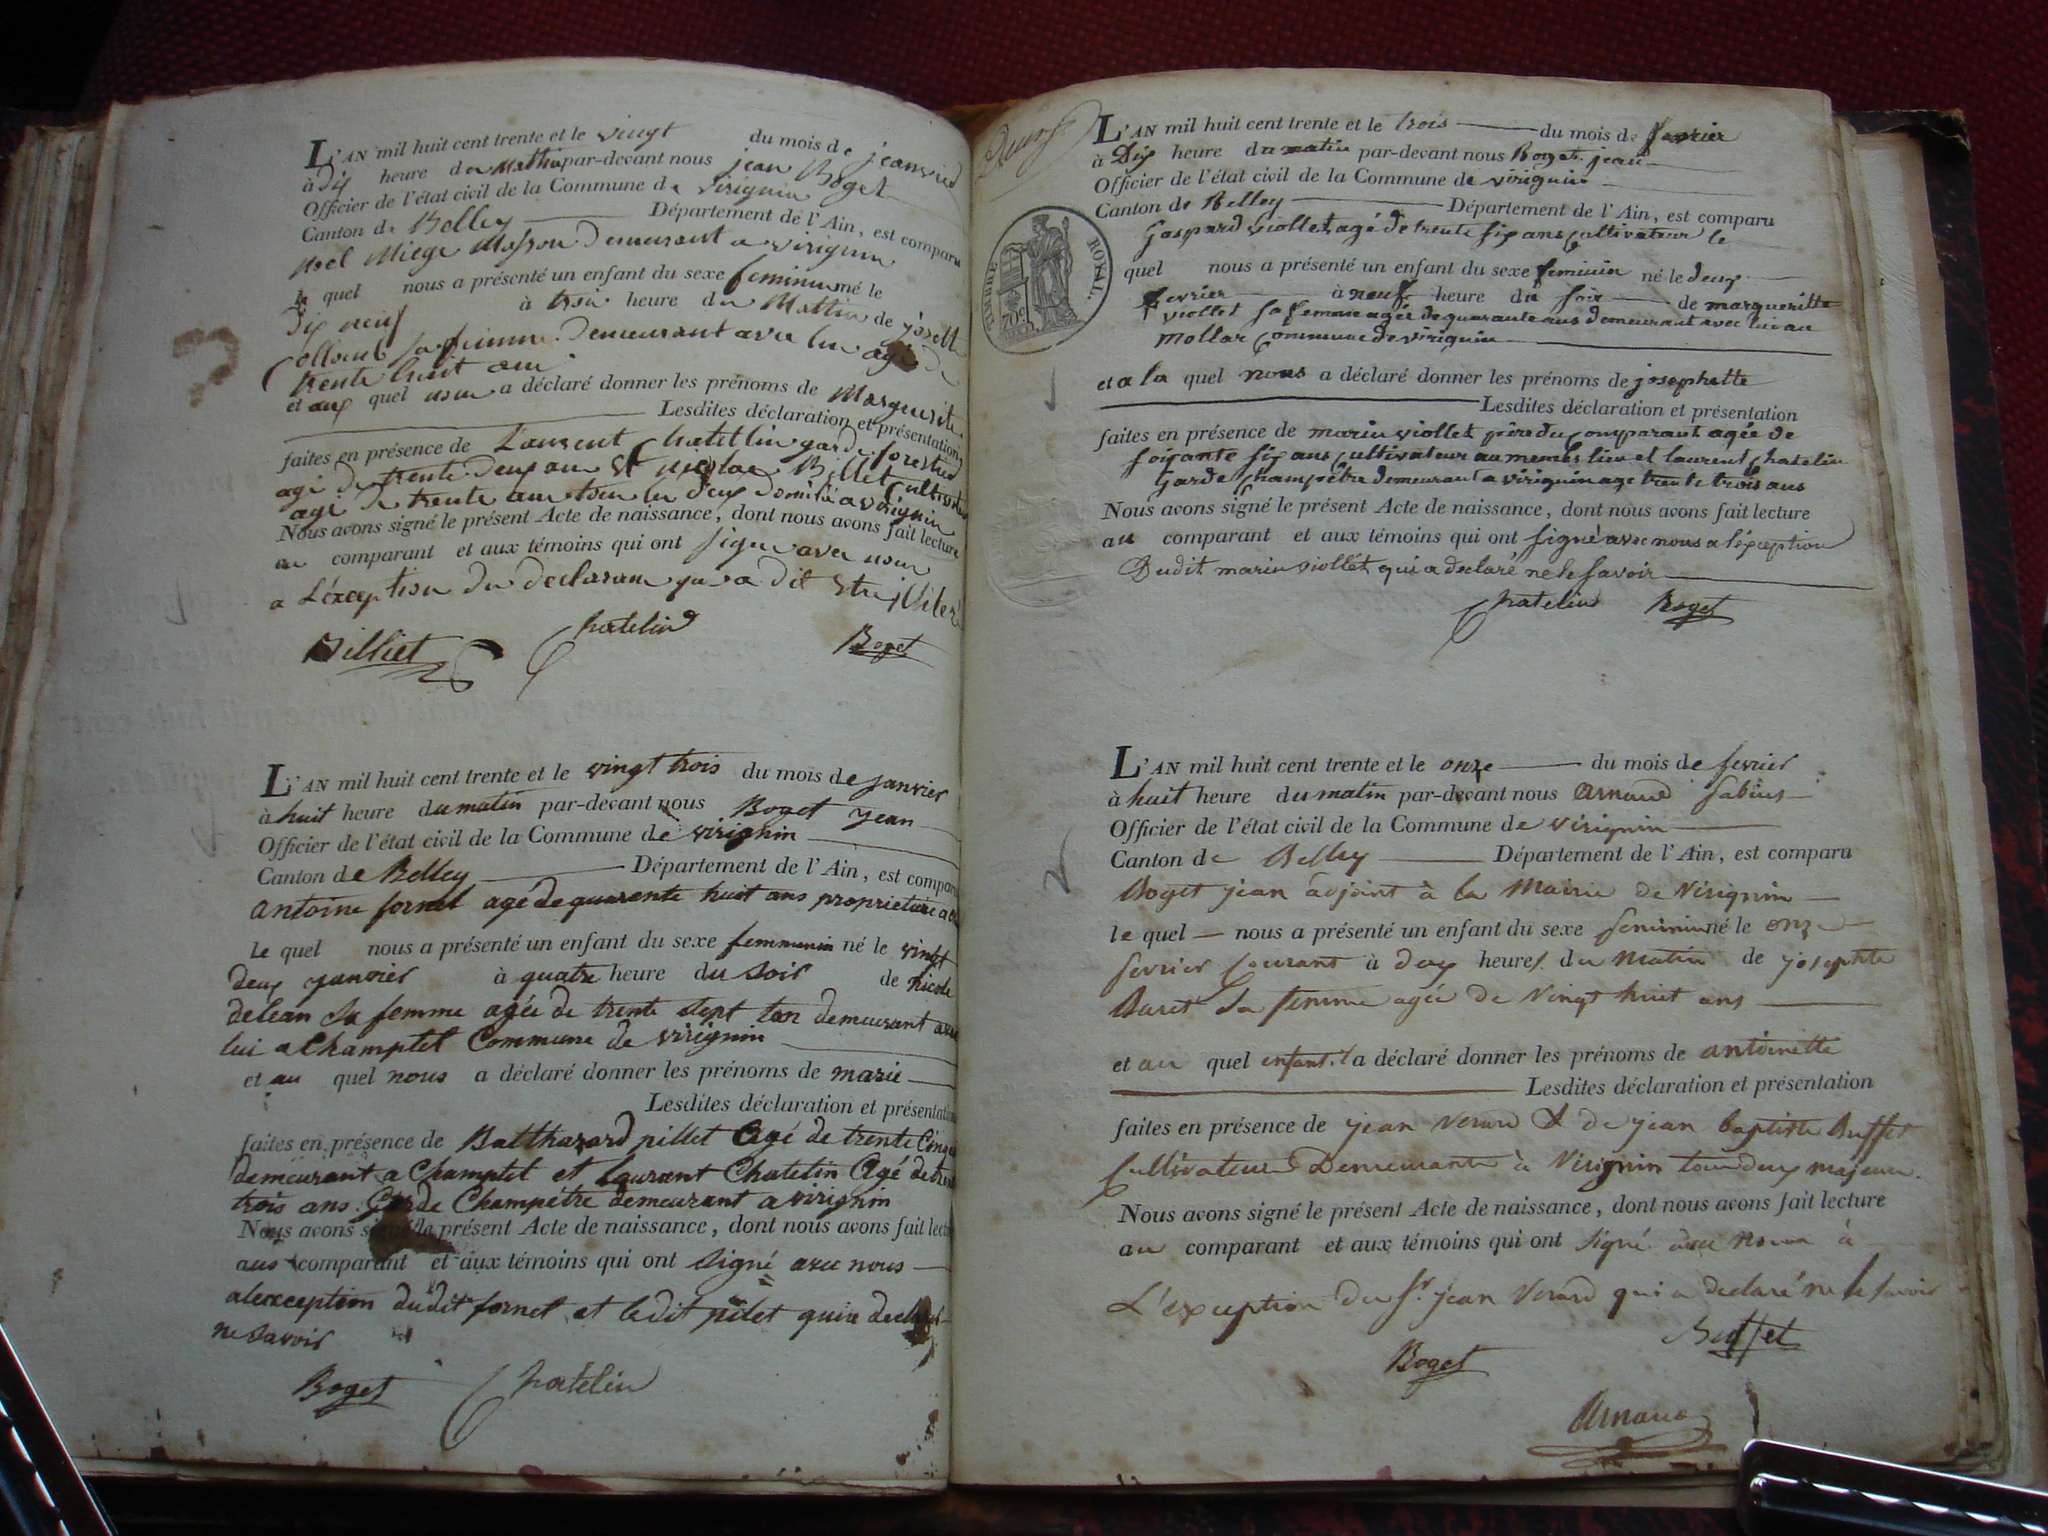 L'AN mil huit cent trente et le vingt du mois de jeanvied
à Dix heure du Mattin par-devant nous jean Boget
Officier de l'état civil de la Commune de virignin
Canton de Belley Département de l'Ain, est comparu
Noel Miege Masson demeurant a virignin
le quel nous a présenté un enfant du sexe feminin né le
dix neuf à trois heure du Mattin de josette
Collomb sa femme demeurant avec lui agé de
trente huit ans
et aux quel nous a déclaré donner les prénoms de Marguerite
Lesdites déclaration et présentation
faites en présence de Laurent Chatellin garde forestied
agé de trente deux ans et nicolas Billet Cultivateur
agé de trente ans tous les deux domilié a virignin
Nous avons signé le présent Acte de naissance, dont nous avons fait lecture
au comparant et aux témoins qui ont signer avec nous
a L'éxception du declarant qui a dit Etre illiteré
Billiet Chatelin Boget
L'AN mil huit cent trente et le vingt trois du mois de janvier
à huit heure du matin par-devant nous Boget jean
Officier de l'état civil de la Commune de virignin
Canton de Belley Département de l'Ain, est comparu
antoine fornet agé de quarente huit ans proprietaire
le quel nous a présenté un enfant du sexe femminin né le vingt
deux janvier à quatre heure du soir de nicole
delean sa femme agée de trente sept ans demeurant avec
lui a Champtel Commune de virignin
et au quel nous a déclaré donner les prénoms de marie
Lesdites déclaration et présentation
faites en présence de Balthazard pillet Agé de trente Cinq
demeurant a Champtel et Laurent Chatelin Agé de trente
trois ans Garde Champêtre demeurant a virignin
Nous avons signé le présent Acte de naissance, dont nous avons fait lecture
aus comparant et aux témoins qui ont signé avec nous
alexception dudit fornet et ledit pilet qui a declaré
ne savoir
Boget Chatelin
L'AN mil huit cent trente et le trois du mois de fevrier
à Dix heure du matin par-devant nous Boget jean
Officier de l'état civil de la Commune de virignin
Canton de Belley Département de l'Ain, est comparu
Gaspard viollet agé de trente six ans Cultivateur le
quel nous a présenté un enfant du sexe feminin né le deux
fevrier à neuf heure du soir de margueritte
viollet sa femme agée de quarante ans demeurant avec lui au
mollar Commune de virignin
et a la quel nous a déclaré donner les prénoms de josephette
Lesdites déclaration et présentation
faites en présence de marin viollet père du Comparant agée de
soixante six ans Cultivateur au memes lieu et laurent Chatelin
Garde Champêtre demeurant a virignin age trente trois ans
Nous avons signé le présent Acte de naissance, dont nous avons fait lecture
au comparant et aux témoins qui ont signé avec nous a l'éxception
Dudit marin viollet qui a declaré ne le savoir
Chatelin Boget
TIMBRE ROYAL
70c
L'AN mil huit cent trente et le onze du mois de fevrier
à huit heure du matin par-devant nous Arnaud fabius
Officier de l'état civil de la Commune de virignin
Canton de Belley Département de l'Ain, est comparu
Boget jean adjoint à la Mairie de Virignin
le quel nous a présenté un enfant du sexe feminin né le onze
fevrier Courant à deux heures du Matin de josephte
Buret sa femme agée de Vingt huit ans
et au quel enfant il a déclaré donner les prénoms de antoinette
Lesdites déclaration et présentation
faites en présence de jean Verard & de jean baptiste Buffet
Cultivateurs Demeurants à Virignin tous deux majeurs
Nous avons signé le présent Acte de naissance, dont nous avons fait lecture
au comparant et aux témoins qui ont signé avec nous à
L'exception du Sr. jean Verard qui a declaré ne le savoir
Boget Buffet
Arnaud